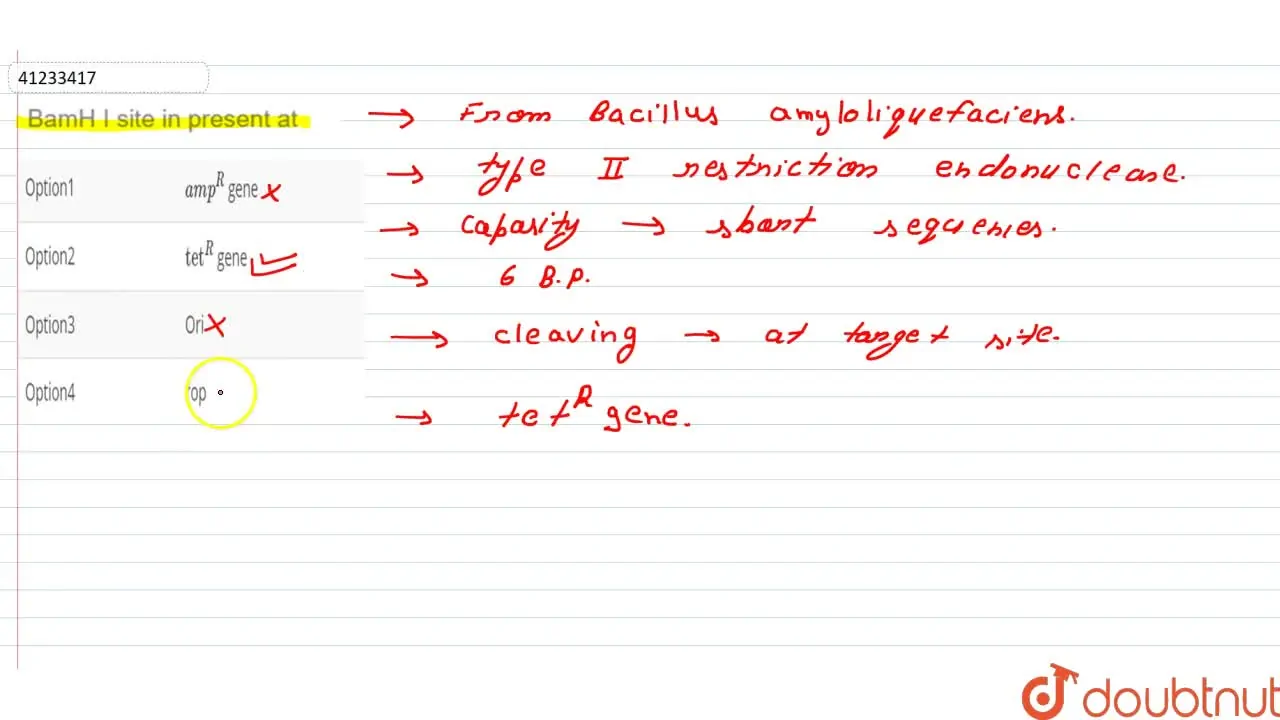 41233417
BamH I site in present at
Option1 amp^R gene ✗
Option2 tet^R gene ✓
Option3 Ori ✗
Option4 rop
→ From Bacillus amyloliquefaciens.
→ type II restriction endonuclease.
→ capasity → short sequences.
→ 6 B.P.
→ cleaving → at target site.
→ tet^R gene.
doubtnut